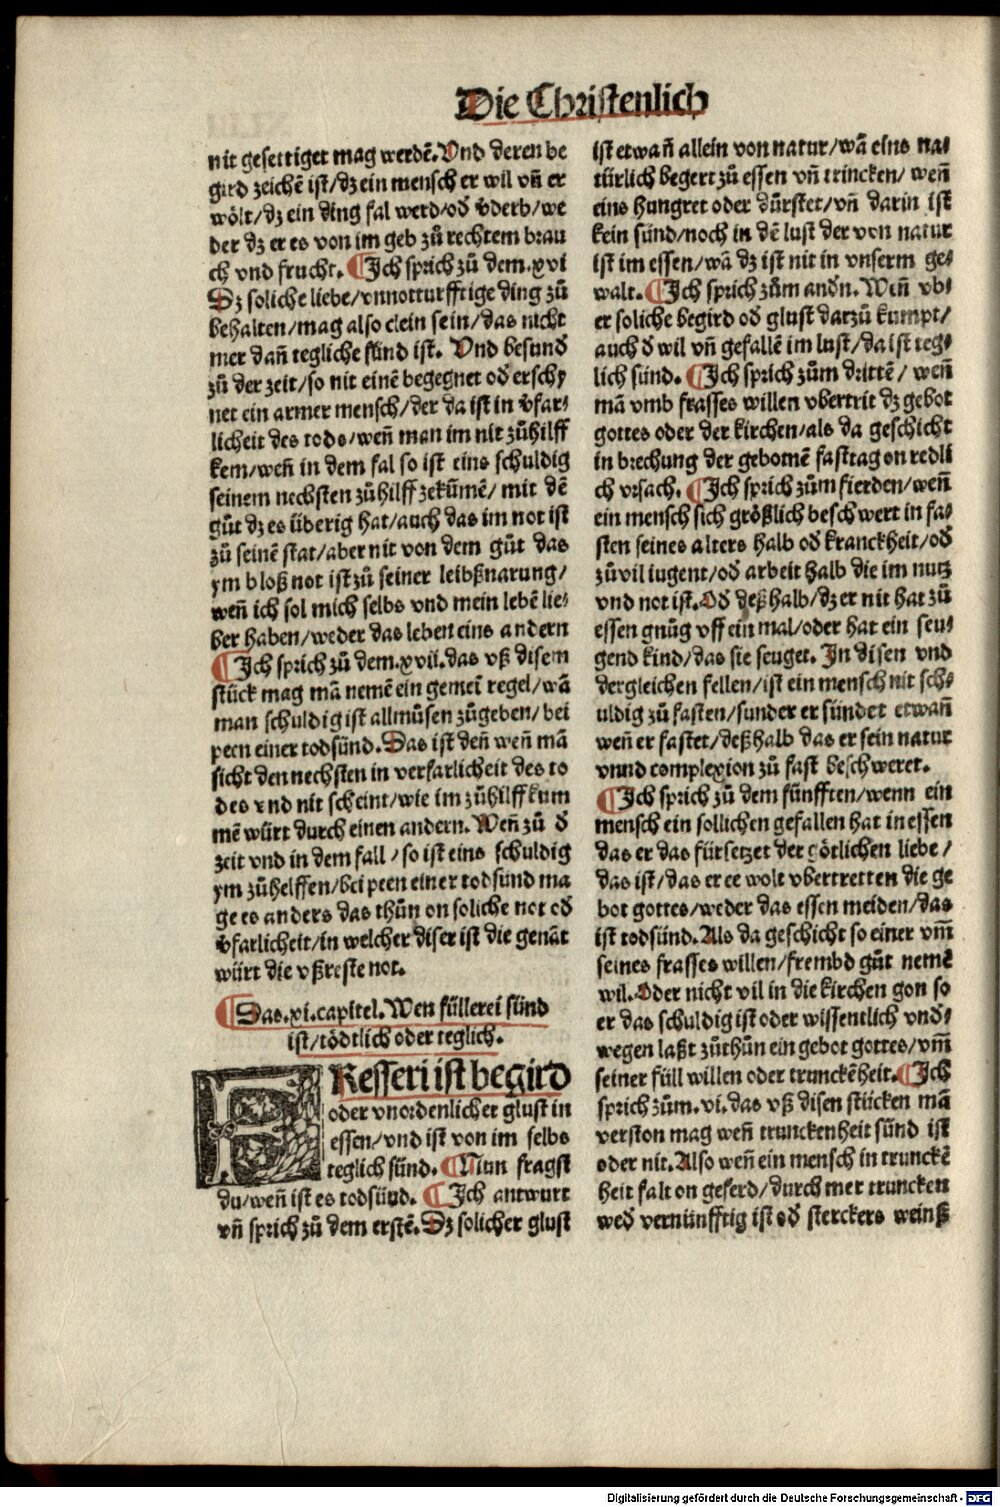 Die Christenlich
nit gesettiget mag werdē. Vnd deren be
gird zeichē ist/dz ein mensch er wil vñ er
wölt/dz ein ding fal werd/od v̄derb/we
der dz er es von im geb zů rechtem brau
ch vnd frucht. ¶Ich sprich zů dem.xvi
Dz soliche liebe/vnnotturfftige ding zů
behalten/mag also clein sein/das nicht
mer dañ tegliche sünd ist. Vnd besund
zů der zeit/so nit einē begegnet od erschy
net ein armer mensch/der da ist in v̄far⸗
licheit des tods/weñ man im nit zůhilff
kem/weñ in dem fal so ist eins schuldig
seinem nechsten zůhilff zekūmē/mit dē
gůt dz es überig hat/auch das im not ist
zů seinē stat/aber nit von dem gůt das
ym bloß not ist zů seiner leibßnarung/
weñ ich sol mich selbs vnd mein lebē lie⸗
ber haben/weder das leben eins andern
¶Ich sprich zů dem.xvii.das vß disem
stück mag mā nemē ein gemeī regel/wā
man schuldig ist allmůsen zůgeben/bei
peen einer todsünd. Das ist deñ weñ mā
sicht den nechsten in verfarlicheit des to
des vnd nit scheint/wie im zůhilff kum
mē würt durch einen andern. Weñ zů d
zeit vnd in dem fall/so ist eins schuldig
ym zůhelffen/bei peen einer todsund ma
ge es anders das thůn on soliche not od
v̄farlicheit/in welcher diser ist die genāt
würt die vßreste not.
¶Das.xi.capitel. Wen füllerei sünd
ist/tödtlich oder teglich.
FResseri ist begird
oder vnordenlicher glust in
essen/vnd ist von im selbs
teglich sünd. ¶Nun fragst
du/weñ ist es todsünd. ¶Ich antwurt
vñ sprich zů dem erstē. Dz solicher glust
ist etwañ allein von natur/wā eins na⸗
türlich begert zů essen vñ trincken/weñ
eins hungret oder dürstet/vñ darin ist
kein sünd/noch in dē lust der von natur
ist im essen/wā dz ist nit in vnserm ge⸗
walt. ¶Ich sprich zům andn. Weñ vb⸗
er soliche begird od glust darzů kumpt/
auch d wil vñ gefallē im lust/da ist teg⸗
lich sünd. ¶Ich sprich zům drittē/weñ
mā vmb frasses willen vbertrit dz gebot
gottes oder der kirchen/als da geschicht
in brechung der gebotnē fasttag on redli
ch vrsach. ¶Ich sprich zům fierden/weñ
ein mensch sich größlich beschwert in fa⸗
sten seines alters halb od kranckheit/od
zůvil iugent/od arbeit halb die im nutz
vnd not ist. Od deßhalb/dz er nit hat zů
essen gnůg vff ein mal/oder hat ein seu⸗
gend kind/das sie seuget. In disen vnd
dergleichen fellen/ist ein mensch nit sch⸗
uldig zů fasten/sunder er sündet etwañ
weñ er fastet/deßhalb das er sein natur
vnnd complexion zů fast beschweret.
¶Ich sprich zů dem fünfften/wenn ein
mensch ein sollichen gefallen hat in essen
das er das fürsetzet der götlichen liebe/
das ist/das er ee wolt vbertretten die ge
bot gottes/weder das essen meiden/das
ist todsünd. Als da geschicht so einer vm̄
seines frasses willen/frembd gůt nemē
wil. Oder nicht vil in die kirchen gon so
er das schuldig ist oder wissentlich vnd⸗
wegen laßt zůthůn ein gebot gottes/vm̄
seiner füll willen oder trunckēheit. ¶Ich
sprich zům.vi.das vß disen stücken mā
verston mag weñ trunckenheit sünd ist
oder nit. Also weñ ein mensch in trunckē
heit falt on geferd/durch mer truncken
wed vernünfftig ist od sterckers weinß
Digitalisierung gefördert durch die Deutsche Forschungsgemeinschaft - DFG